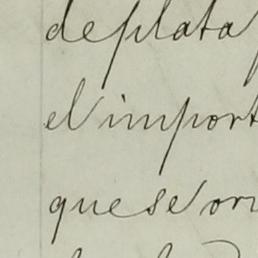 de plata
el import
que se ori